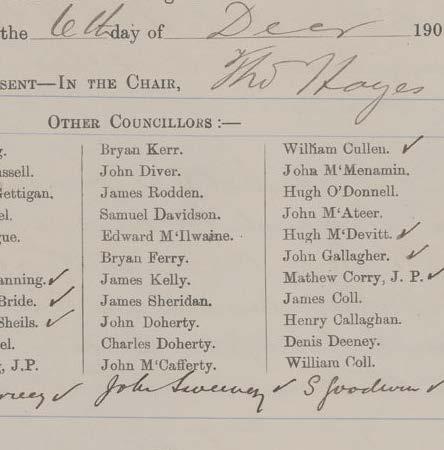 the 6th day of Decr 190
SENT—IN THE CHAIR, Tho Hayes
OTHER COUNCILLORS :—
Bryan Kerr. William Cullen. ✓
ssell. John Diver. John M‘Menamin.
Gettigan. James Rodden. Hugh O'Donnell.
el. Samuel Davidson. John M‘Ateer.
gue. Edward M‘Ilwaine. Hugh M‘Devitt. ✓
Bryan Ferry. John Gallagher. ✓
anning. ✓ James Kelly. Mathew Corry, J. P. ✓
Bride. ✓ James Sheridan. James Coll.
Sheils. ✓ John Doherty. Henry Callaghan.
el. Charles Doherty. Denis Deeney.
, J.P. John M‘Cafferty. William Coll.
✓ John Sweeney ✓ S Goodwin ✓